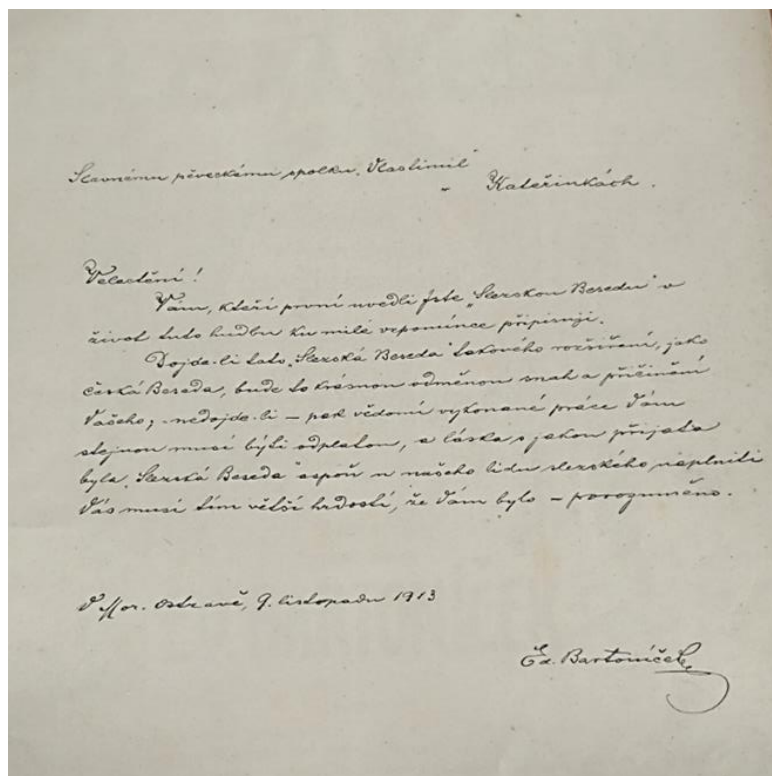 Slavnému pěveckému spolku „Vlastimil“
v Kateřinkách.
Velectění!
Vám, kteří první uvedli jste „Slezskou Besedu“ v
život tuto hudbu ku milé vzpomínce připisuji.
Dojde-li tato „Slezská Beseda“ takového rozšíření, jako
česká Beseda, bude to krásnou odměnou snah a přičinění
Vašeho; nedojde-li – pak vědomí vykonané práce Vám
stejnou musí býti odplatou, a láska s jakou přijata
byla „Slezská Beseda“ aspoň u našeho lidu slezského naplniti
Vás musí tím větší hrdostí, že Vám bylo – porozuměno.
V Mor. Ostravě, 9. listopadu 1913
Ed. Bartoníček